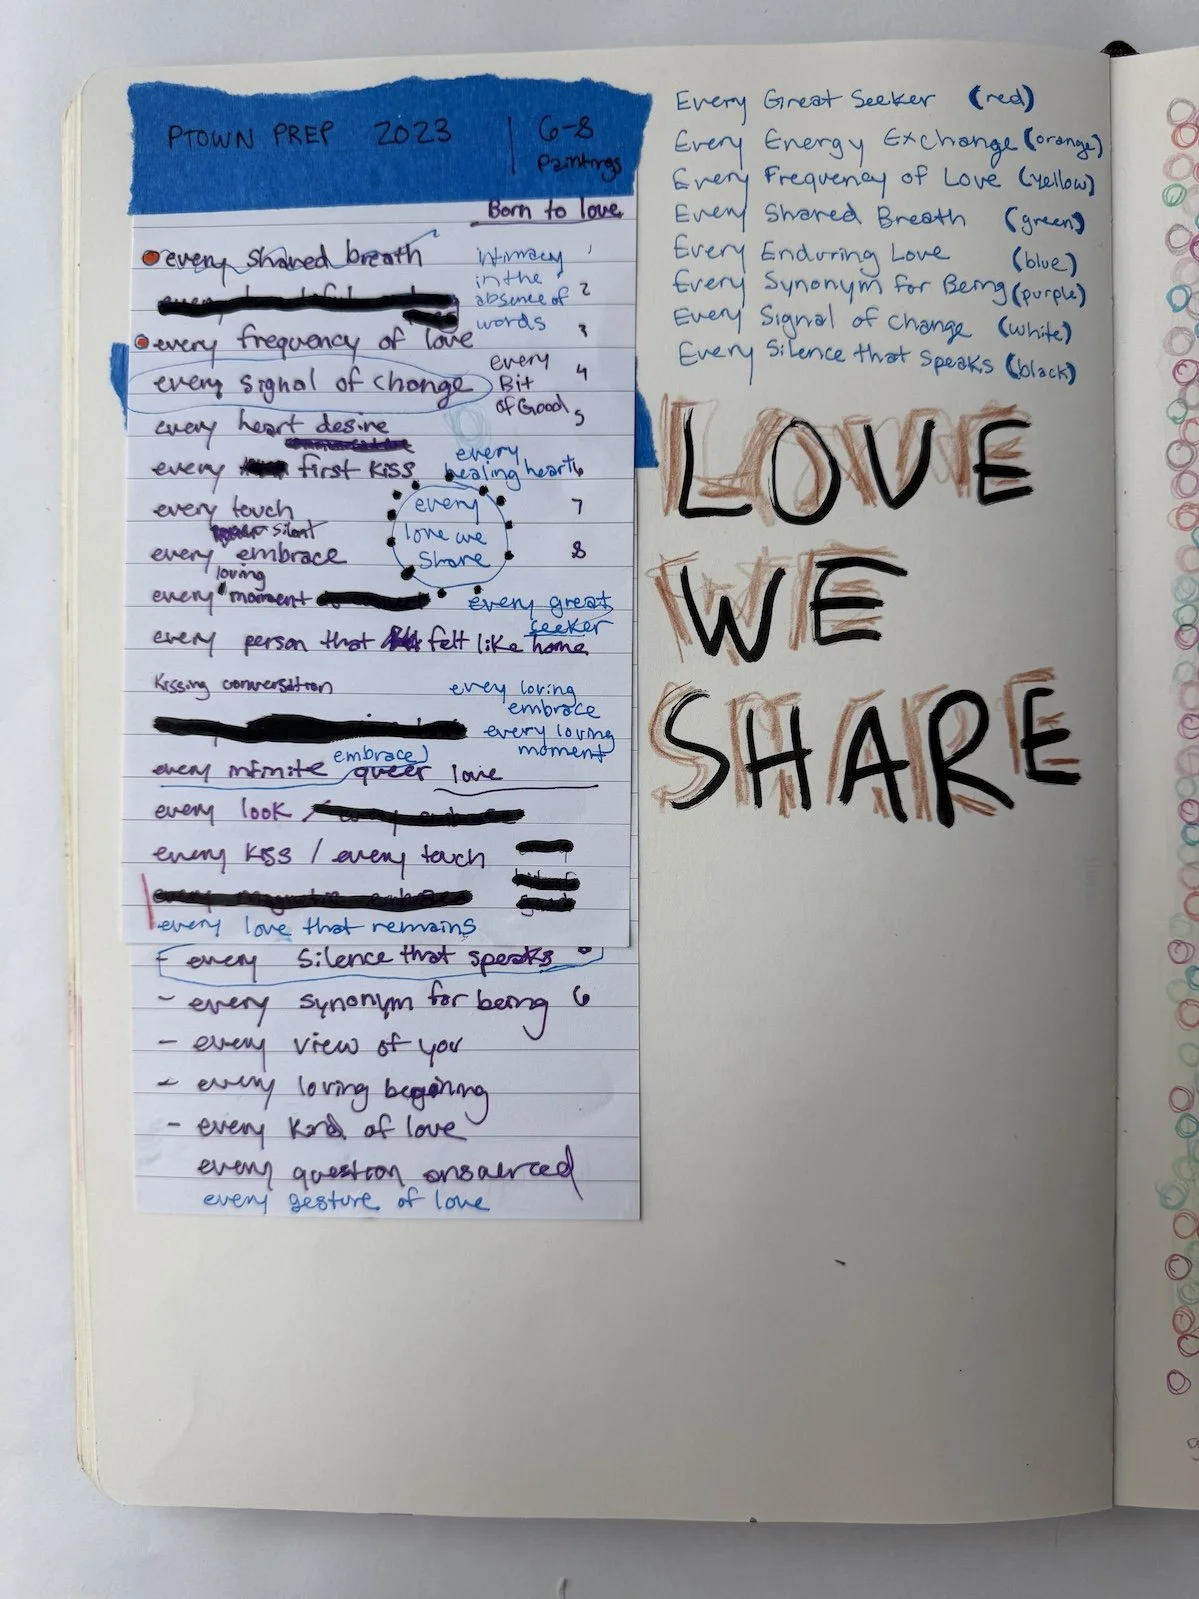 PTOWN PREP 2023 | 6-8
Paintings
Born to love
every shared breath
intimacy
in the
absence of
words
1
2
3
4
5
6
7
8
every frequency of love
every signal of change
every
Bit
of Good
every heart desire
every first kiss
every
healing heart
every touch
silent
every embrace
every
love we
share
loving
every moment
every great
seeker
every person that felt like home
Kissing conversation
every loving
embrace
every loving
moment
embrace
every infinite queer love
every look
every kiss / every touch
every magnetic embrace
every love that remains
every silence that speaks
- every synonym for being 6
- every view of you
- every loving begining
- every kind of love
every question answered
every gesture of love
Every Great Seeker (red)
Every Energy Exchange (orange)
Every Frequency of Love (yellow)
Every Shared Breath (green)
Every Enduring Love (blue)
Every Synonym for Being (purple)
Every Signal of Change (white)
Every Silence that Speaks (black)
LOVE
WE
SHARE